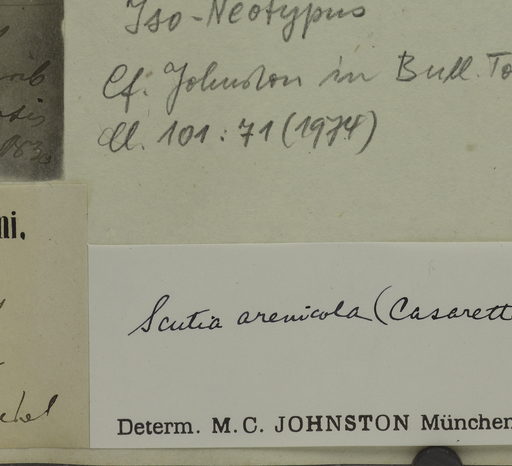 Iso-Neotypus
Cf. Johnston in Bull. To
Cl. 101: 71 (1974)
ni.
Scutia arenicola (Casarett
Determ. M. C. JOHNSTON München